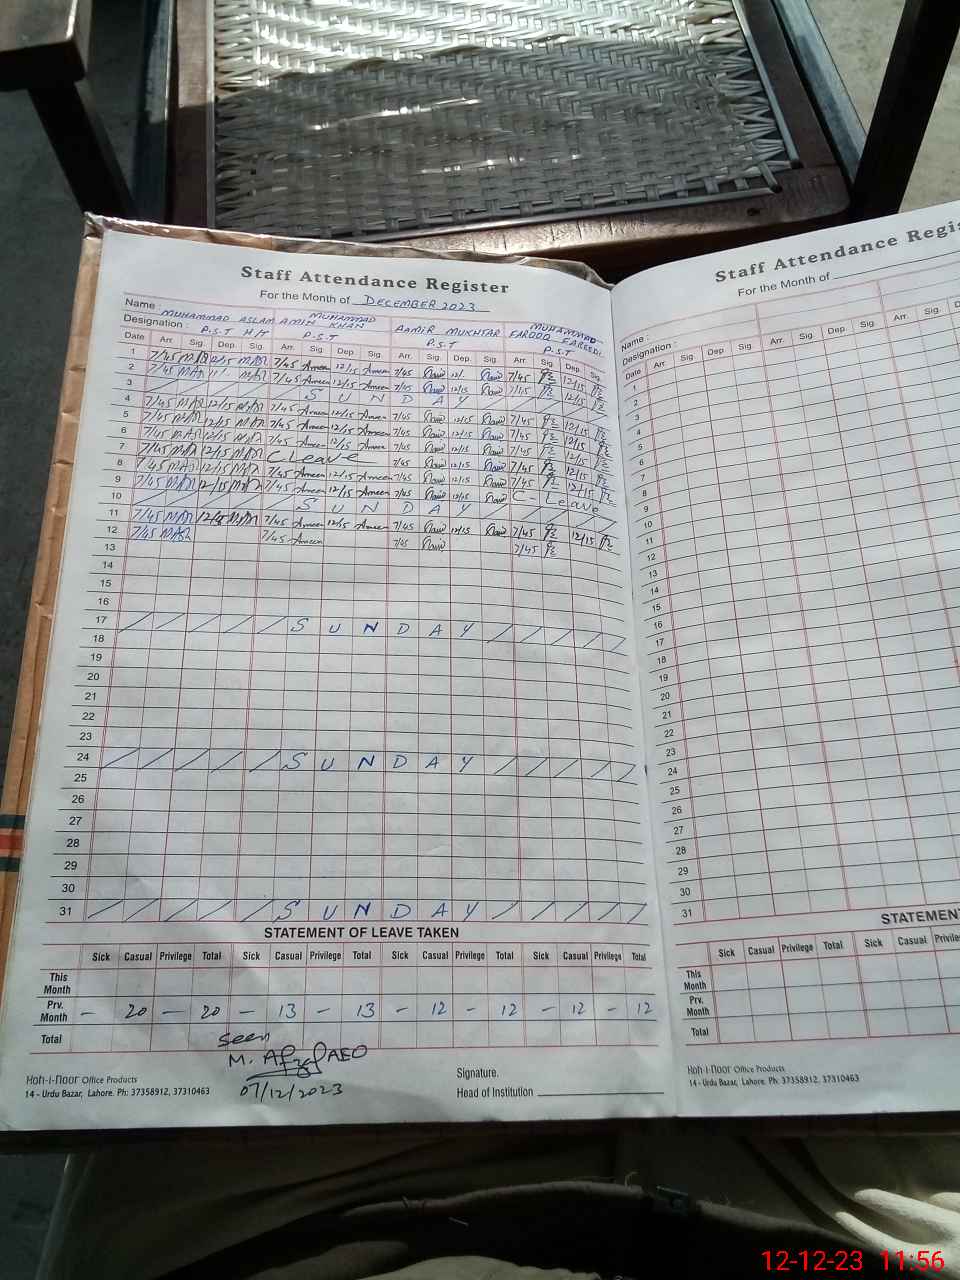 Staff Attendance Register
For the Month of DECEMBER 2023
Name : MUHAMMAD ASLAM AMIN MUHAMMAD KHAN AAMIR MUKHTAR MUHAMMAD FAROOQ FAREEDI
Designation : P.S.T H.M P.S.T P.S.T P.S.T
Date Arr. Sig. Dep. Sig. Arr. Sig. Dep. Sig. Arr. Sig. Dep. Sig. Arr. Sig. Dep. Sig.
1 7/45 12/15 7/45 Ameen 12/15 Ameen 7/45 12/ 7/45 12/15
2 7/45 11 7/45 Ameen 12/15 Ameen 7/45 12/15 7/45 12/15
3 SUNDAY
4 7/45 12/15 7/45 Ameen 12/15 Ameen 7/45 12/15 7/45 12/15
5 7/45 12/15 7/45 Ameen 12/15 Ameen 7/45 12/15 7/45 12/15
6 7/45 12/15 7/45 Ameen 12/15 Ameen 7/45 12/15 7/45 12/15
7 7/45 12/15 C Leave 7/45 12/15 7/45 12/15
8 7/45 12/15 7/45 Ameen 12/15 Ameen 7/45 12/15 7/45 12/15
9 7/45 12/15 7/45 Ameen 12/15 Ameen 7/45 12/45 C-Leave
10 SUNDAY
11 7/45 7/45 Ameen 12/15 Ameen 7/45 12/15 7/45 12/15
12 7/45 7/45 Ameen 7/45 7/45
13
14
15
16
17 SUNDAY
18
19
20
21
22
23
24 SUNDAY
25
26
27
28
29
30
31 SUNDAY
STATEMENT OF LEAVE TAKEN
Sick Casual Privilege Total Sick Casual Privilege Total Sick Casual Privilege Total Sick Casual Privilege Total
This Month
Prv. Month – 20 – 20 – 13 – 13 – 12 – 12 – 12 – 12
Total
seen
M. Afzal AEO
07/12/2023
Signature.
Head of Institution
Koh-i-Noor Office Products
14 - Urdu Bazar, Lahore. Ph: 37358912, 37310463
Staff Attendance Regis
For the Month of
Name :
Designation :
Date Arr. Sig. Dep. Sig. Arr. Sig. Dep. Sig. D
1
2
3
4
5
6
7
8
9
10
11
12
13
14
15
16
17
18
19
20
21
22
23
24
25
26
27
28
29
30
31
STATEMENT
Sick Casual Privilege Total Sick Casual Privile
This Month
Prv. Month
Total
Koh-i-Noor Office Products
14 - Urdu Bazar, Lahore. Ph: 37358912, 37310463
12-12-23 11:56